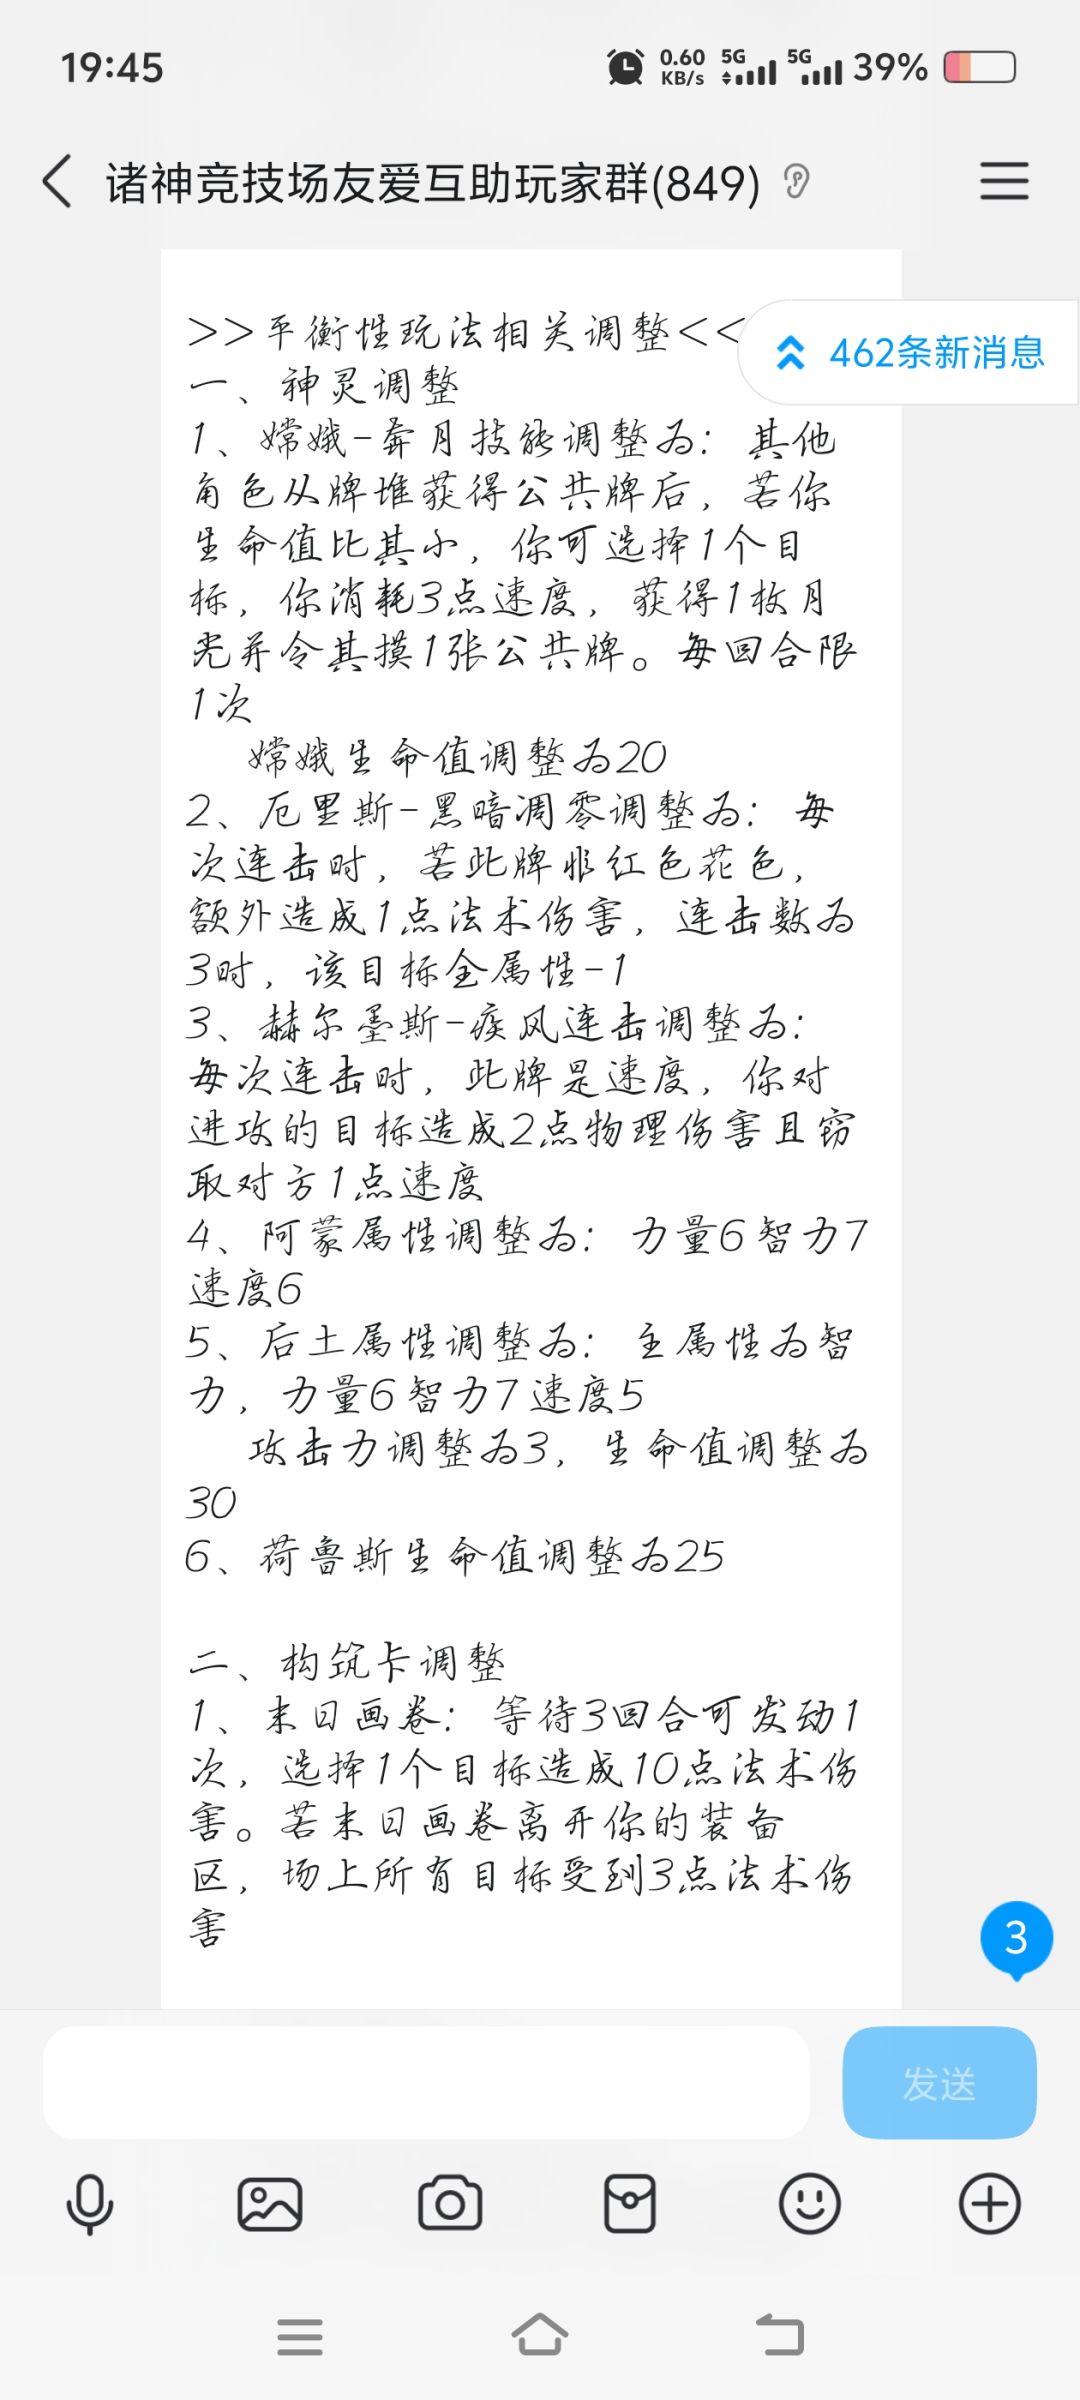 19:45
0.60 KB/s 5G 5G 39%
诸神竞技场友爱互助玩家群(849)
462条新消息
>>平衡性玩法相关调整<<
一、神灵调整
1、嫦娥-奔月技能调整为：其他
角色从牌堆获得公共牌后，若你
生命值比其小，你可选择1个目
标，你消耗3点速度，获得1枚月
光并令其摸1张公共牌。每回合限
1次
嫦娥生命值调整为20
2、厄里斯-黑暗凋零调整为：每
次连击时，若此牌非红色花色，
额外造成1点法术伤害，连击数为
3时，该目标全属性-1
3、赫尔墨斯-疾风连击调整为：
每次连击时，此牌是速度，你对
进攻的目标造成2点物理伤害且窃
取对方1点速度
4、阿蒙属性调整为：力量6智力7
速度6
5、后土属性调整为：主属性为智
力，力量6智力7速度5
攻击力调整为3，生命值调整为
30
6、荷鲁斯生命值调整为25
二、构筑卡调整
1、末日画卷：等待3回合可发动1
次，选择1个目标造成10点法术伤
害。若末日画卷离开你的装备
区，场上所有目标受到3点法术伤
害
3
发送